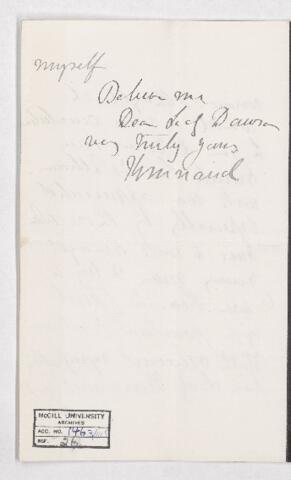 myself
Believe me
Dear Lady Dawson
very truly yours
McGILL UNIVERSITY
ARCHIVES
ACC. NO. 1463/
REF. 26